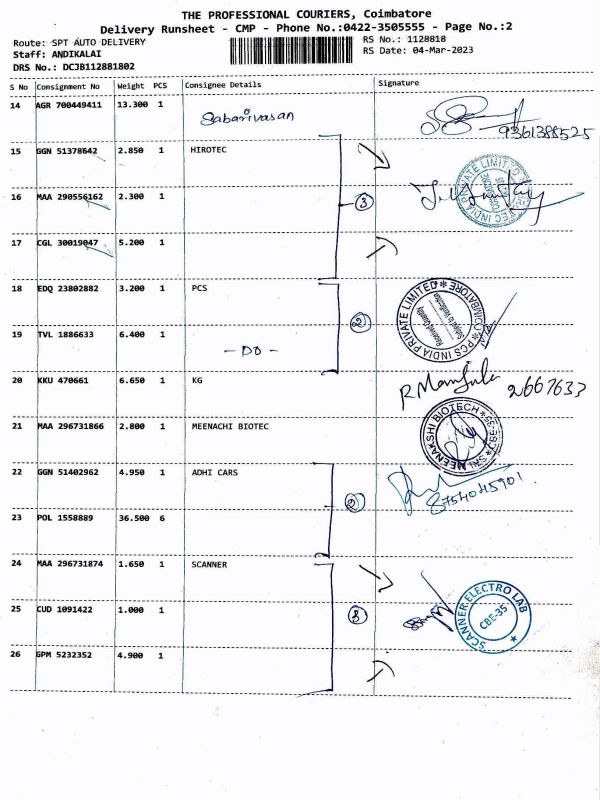 THE PROFESSIONAL COURIERS, Coimbatore
Delivery Runsheet - CMP - Phone No.:0422-3505555 - Page No.:2
Route: SPT AUTO DELIVERY RS No.: 1128818
Staff: ANDIKALAI RS Date: 04-Mar-2023
DRS No.: DCJB112881802
S No Consignment No Weight PCS Consignee Details Signature
14 AGR 700449411 13.300 1 Sabarivasan 9361388525
15 GGN 51378642 2.850 1 HIROTEC
16 MAA 290556162 2.300 1 3
17 CGL 30019047 5.200 1
18 EDQ 23802882 3.200 1 PCS
PCS INDIA PRIVATE LIMITED COIMBATORE
19 TVL 1886633 6.400 1 - DO - 2
20 KKU 470661 6.650 1 KG R Manjula 2667633
21 MAA 296731866 2.800 1 MEENACHI BIOTEC
SRI MEENAKSHI BIOTECH CBE-35
22 GGN 51402962 4.950 1 ADHI CARS 2 8754045901
23 POL 1558889 36.500 6
24 MAA 296731874 1.650 1 SCANNER
25 CUD 1091422 1.000 1 3
SCANNER ELECTRO LAB CBE-35
26 GPM 5232352 4.900 1